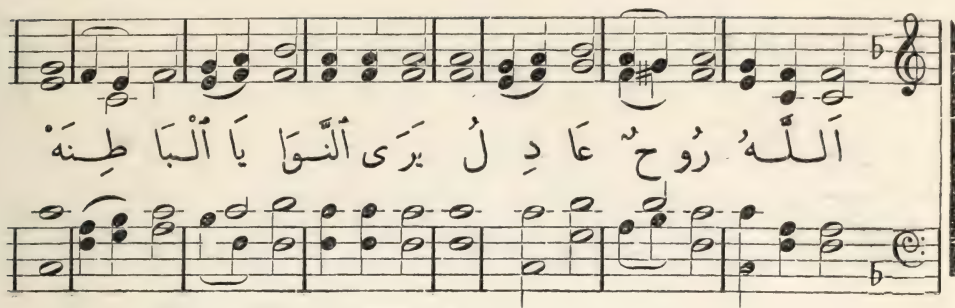 اَللّٰهُ رُوحٌ عَادِلُ يَرَى ٱلنَّوَايَا ٱلْبَاطِنَهْ